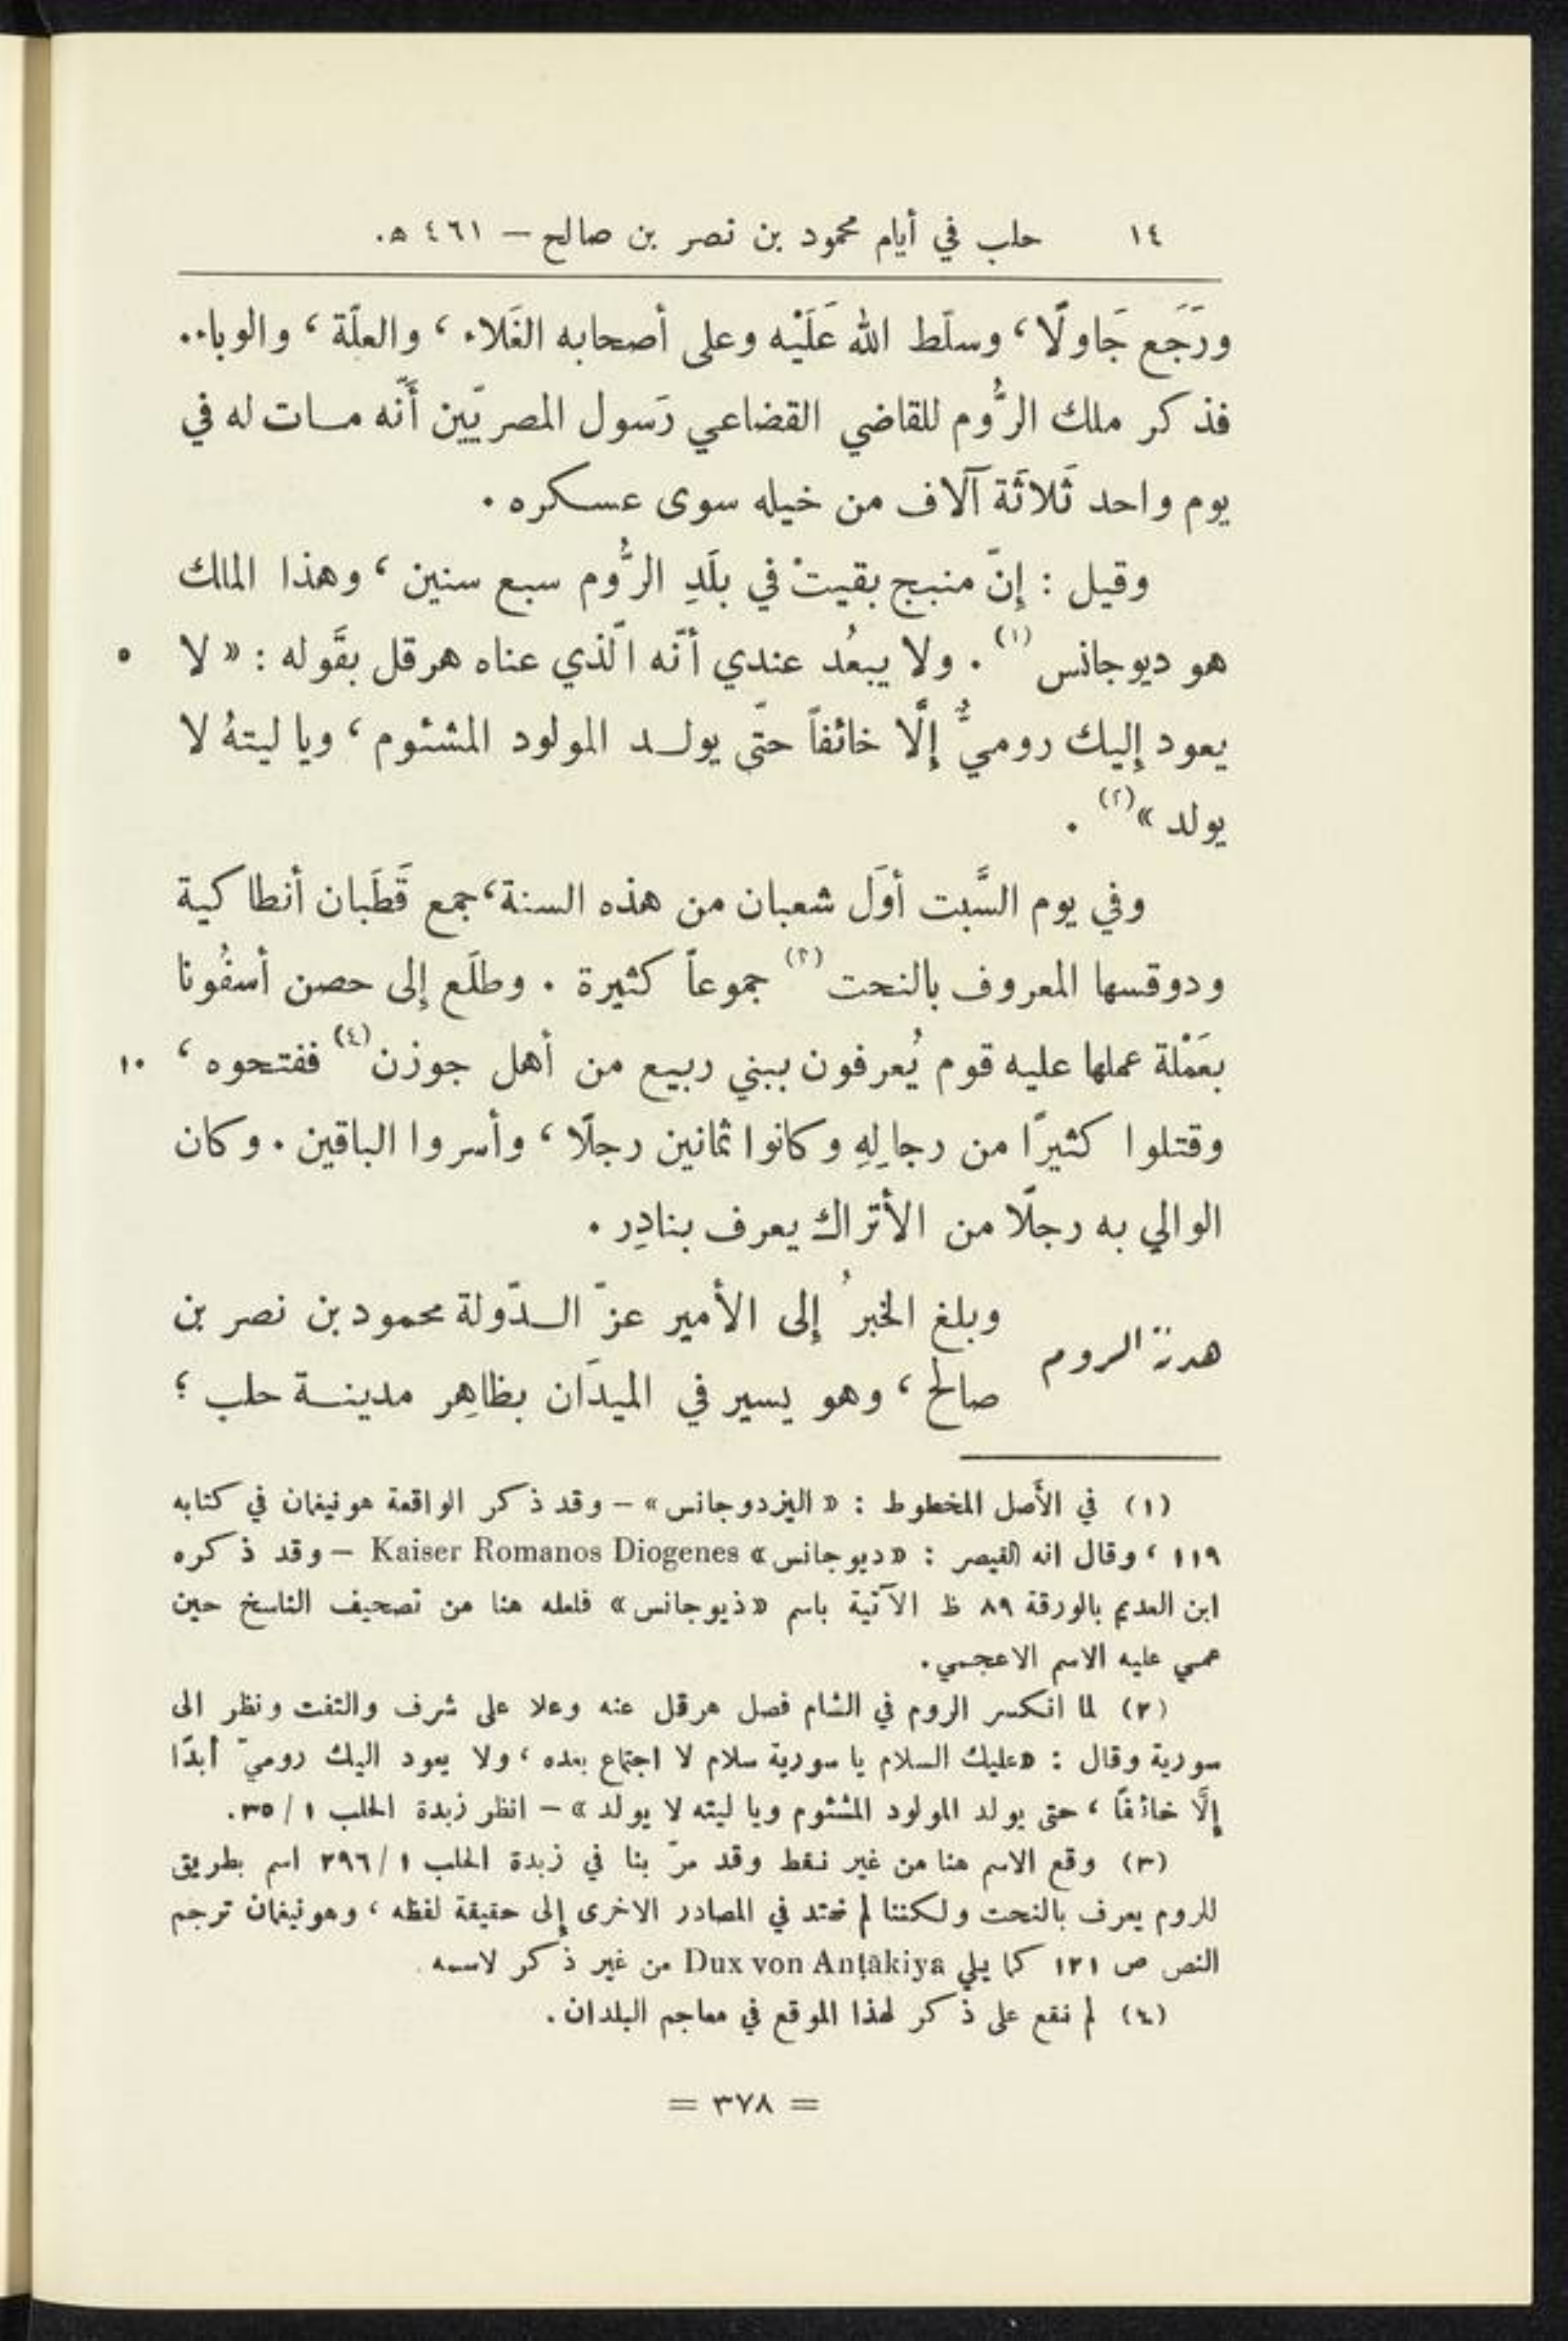 ١٤ حلب في أيام محمود بن نصر بن صالح – ٤٦١ ه.
ورَجَع جَاولًا، وسلّط الله عَلَيْه وعلى أصحابه الغَلاء، والعلّة، والوباء.
فذكر ملك الرُّوم للقاضي القضاعي رَسول المصريّين أَنّه مات له في
يوم واحد ثَلاثَة آلاف من خيله سوى عسكره.
وقيل : إنّ منبج بقيتْ في بلَدِ الرُّوم سبع سنين، وهذا الملك
هو ديوجانس (١). ولا يبعُد عندي أنّه الّذي عناه هرقل بقَوله : « لا
٥
يعود إليك روميٌّ إلّا خائفاً حتّى يولد المولود المشئوم، ويا ليتهُ لا
يولد » (٢).
وفي يوم السَّبت أوَل شعبان من هذه السنة، جمع قَطَبان أنطاكية
ودوقسها المعروف بالنحت (٣) جموعاً كثيرة. وطلَع إلى حصن أسفُونا
بعَمْلة عملها عليه قوم يُعرفون ببني ربيع من أهل جوزن (٤) ففتحوه،
١٠
وقتلوا كثيرًا من رجالِهِ وكانوا ثمانين رجلًا، وأسروا الباقين. وكان
الوالي به رجلًا من الأتراك يعرف بنادِر.
هدنة الروم
وبلغ الخبرُ إلى الأمير عزّ الدّولة محمود بن نصر بن
صالح، وهو يسير في الميدَان بظاهِر مدينة حلب ؛
(١) في الأَصل المخطوط : « اليزدوجانس » – وقد ذكر الواقعة هونيغان في كتابه
١١٩، وقال انه القيصر : «ديوجانس» Kaiser Romanos Diogenes – وقد ذكره
ابن العديم بالورقة ٨٩ ظ الآتية باسم «ذيوجانس» فلعله هنا من تصحيف الناسخ حين
عمي عليه الاسم الاعجمي.
(٢) لما انكسر الروم في الشام فصل هرقل عنه وعلا على شرف والتفت ونظر الى
سورية وقال : «عليك السلام يا سورية سلام لا اجتماع بعده، ولا يعود اليك روميّ أبدًا
إلَّا خائفًا، حتى يولد المولود المشئوم ويا ليته لا يولد » – انظر زبدة الحلب ١ / ٣٥.
(٣) وقع الاسم هنا من غير نقط وقد مرّ بنا في زبدة الحلب ١ / ٢٩٦ اسم بطريق
للروم يعرف بالنحت ولكننا لم نهتد في المصادر الاخرى إلى حقيقة لفظه، وهونيغان ترجم
النص ص ١٢١ كما يلي Dux von Anṭākiya من غير ذكر لاسمه
(٤) لم نقع على ذكر لهذا الموقع في معاجم البلدان.
= ٣٧٨ =